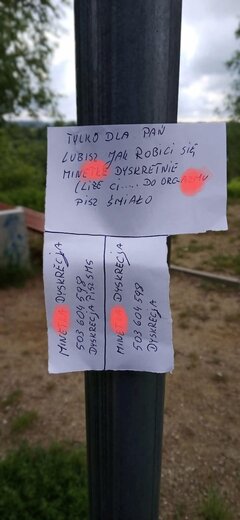 TYLKO DLA PAŃ
LUBISZ JAK ROBICI SIĘ
MINETKE DYSKRETNIE
(LIŻE CI..... DO ORGAZMU
PISZ ŚMIAŁO
MINETKA DYSKRECJA
503 604 598
DYSKRECJA PISZ SMS
MINETKA DYSKRECJA
503 604 598
DYSKRECJA